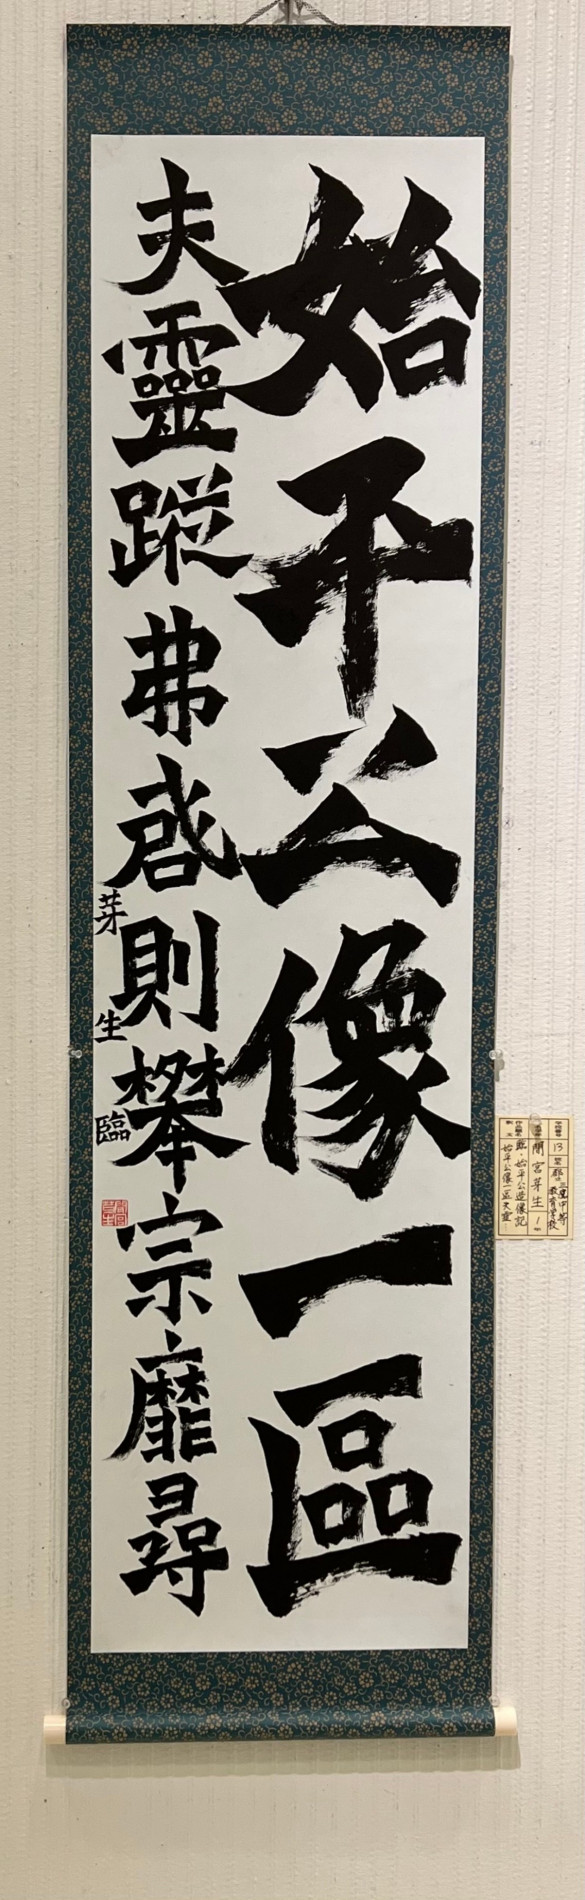 始平公像一區
夫靈蹤弗啓則攀宗靡尋
芽生臨
13
三重中等
教育学校
間宮芽生
臨・始平公造像記
始平公像一區夫靈